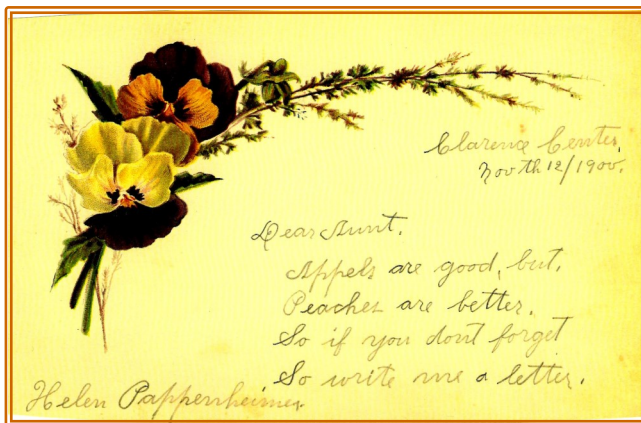 Clarence Center,
Nov th 12/1900.
Dear Aunt.
Appels are good, but,
Peaches are better.
So if you dont forget
So write me a letter.
Helen Pappenheimer